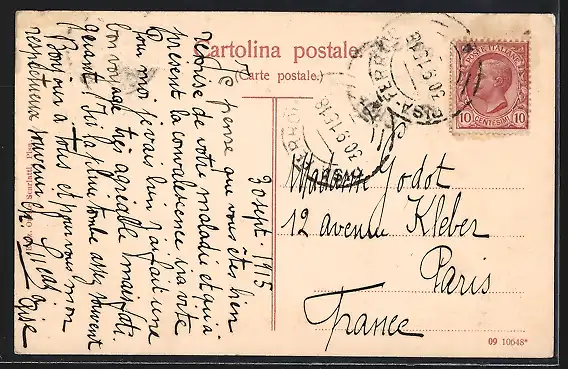 Cartolina postale
(Carte postale.)
POSTE ITALIANE
10 CENTESIMI 10
PISA-FERROVIA
30.9.15
30 sept. 1915
Je pense que vous êtes bien
remise de votre maladie et qu'à
présent la convalescence va vite
Pour moi je vais bien j'ai fait une
bon voyage très agréable
quant à la pluie tombe assez souvent
Bonsoir à tous et pour vous mon
respectueux souvenir
Pise
Madame Godot
12 avenue Kleber
Paris
France
09 10648*